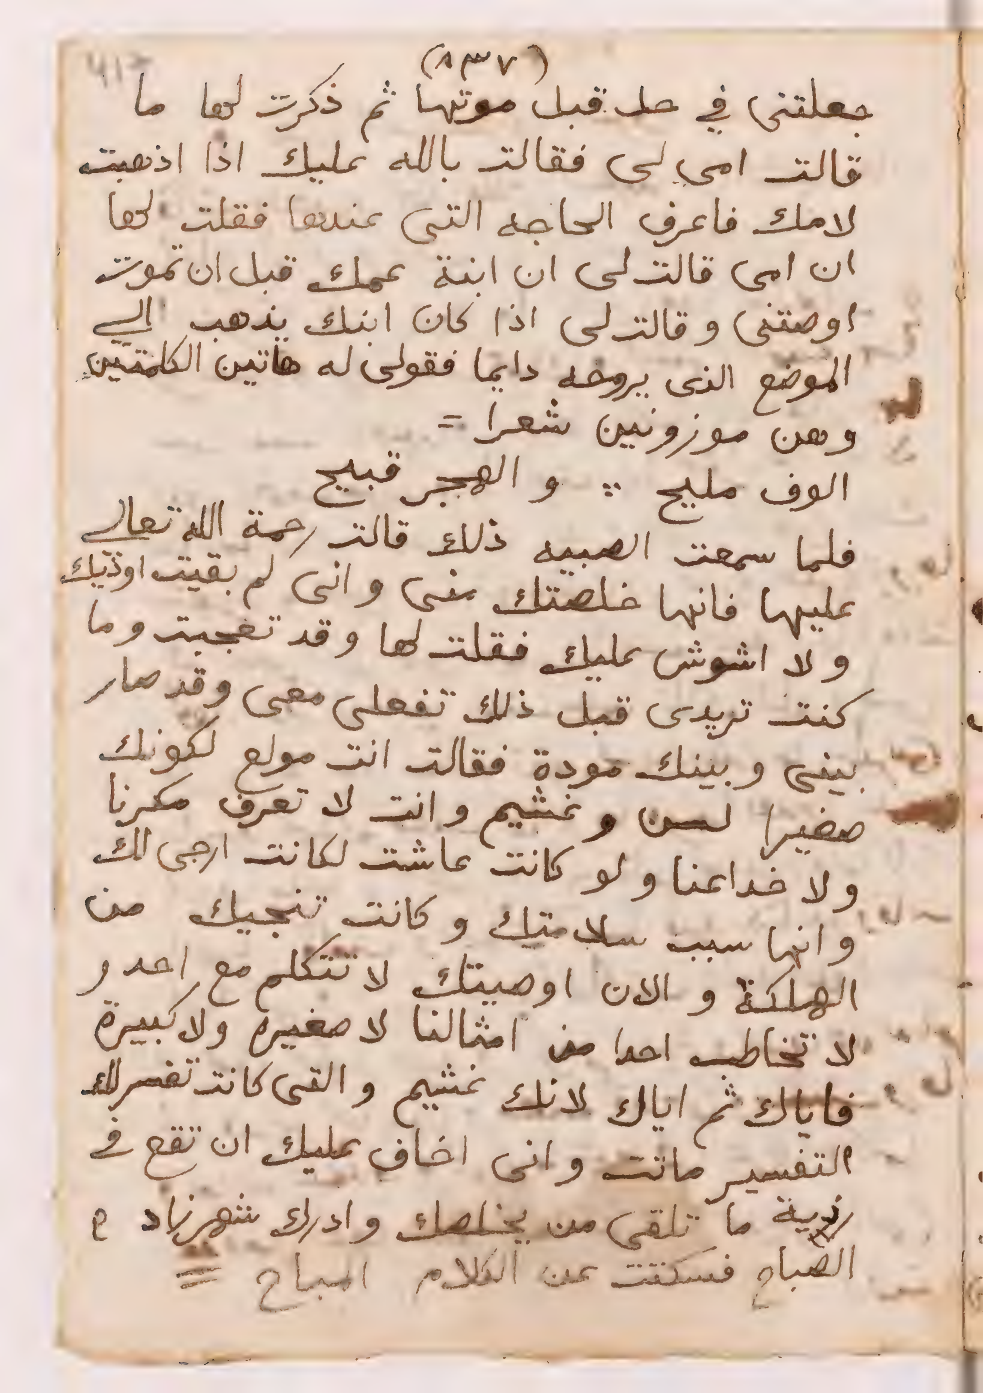 (٨٣٧)
417
جعلتنى في حل قبل موتها ثم ذكرت لها ما
قالت امى لى فقالت بالله عليك اذا اذهبت
لامك فاعرف الحاجه التى عندها فقلت لها
ان امى قالت لى ان ابنة عمك قبل ان تموت
اوصتنى وقالت لى اذا كان ابنك يذهب الي
الموضع الذى يروحه دايما فقولى له هاتين الكلمتين
وهن موزونين شعرا =
الوف مليح ∴ و الهجر قبيح
فلما سمعت الصبيه ذلك قالت رحمة الله تعالي
عليها فانها خلصتك منى وانى لم بقيت اوذيك
ولا اشوش عليك فقلت لها وقد تعجبت وما
كنت تريدى قبل ذلك تفعلى معى وقد صار
بينى وبينك مودة فقالت انت مولع لكونك
صغيرا لسن وغشيم وانت لا تعرف مكرنا
ولا خداعنا ولو كانت عاشت لكانت ارجى لك
وانها سبب سلامتك وكانت تنجيك من
الهلكة و الان اوصيتك لا تتكلم مع احد و
لا تخاطب احدا من امثالنا لا صغيرة ولا كبيرة
فاياك ثم اياك لانك غشيم و التى كانت تفسر لك
التفسير ماتت وانى اخاف عليك ان تقع في
رزية ما تلقى من يخلصك وادرك شهرزاد
الصباح فسكتت عن الكلام المباح =